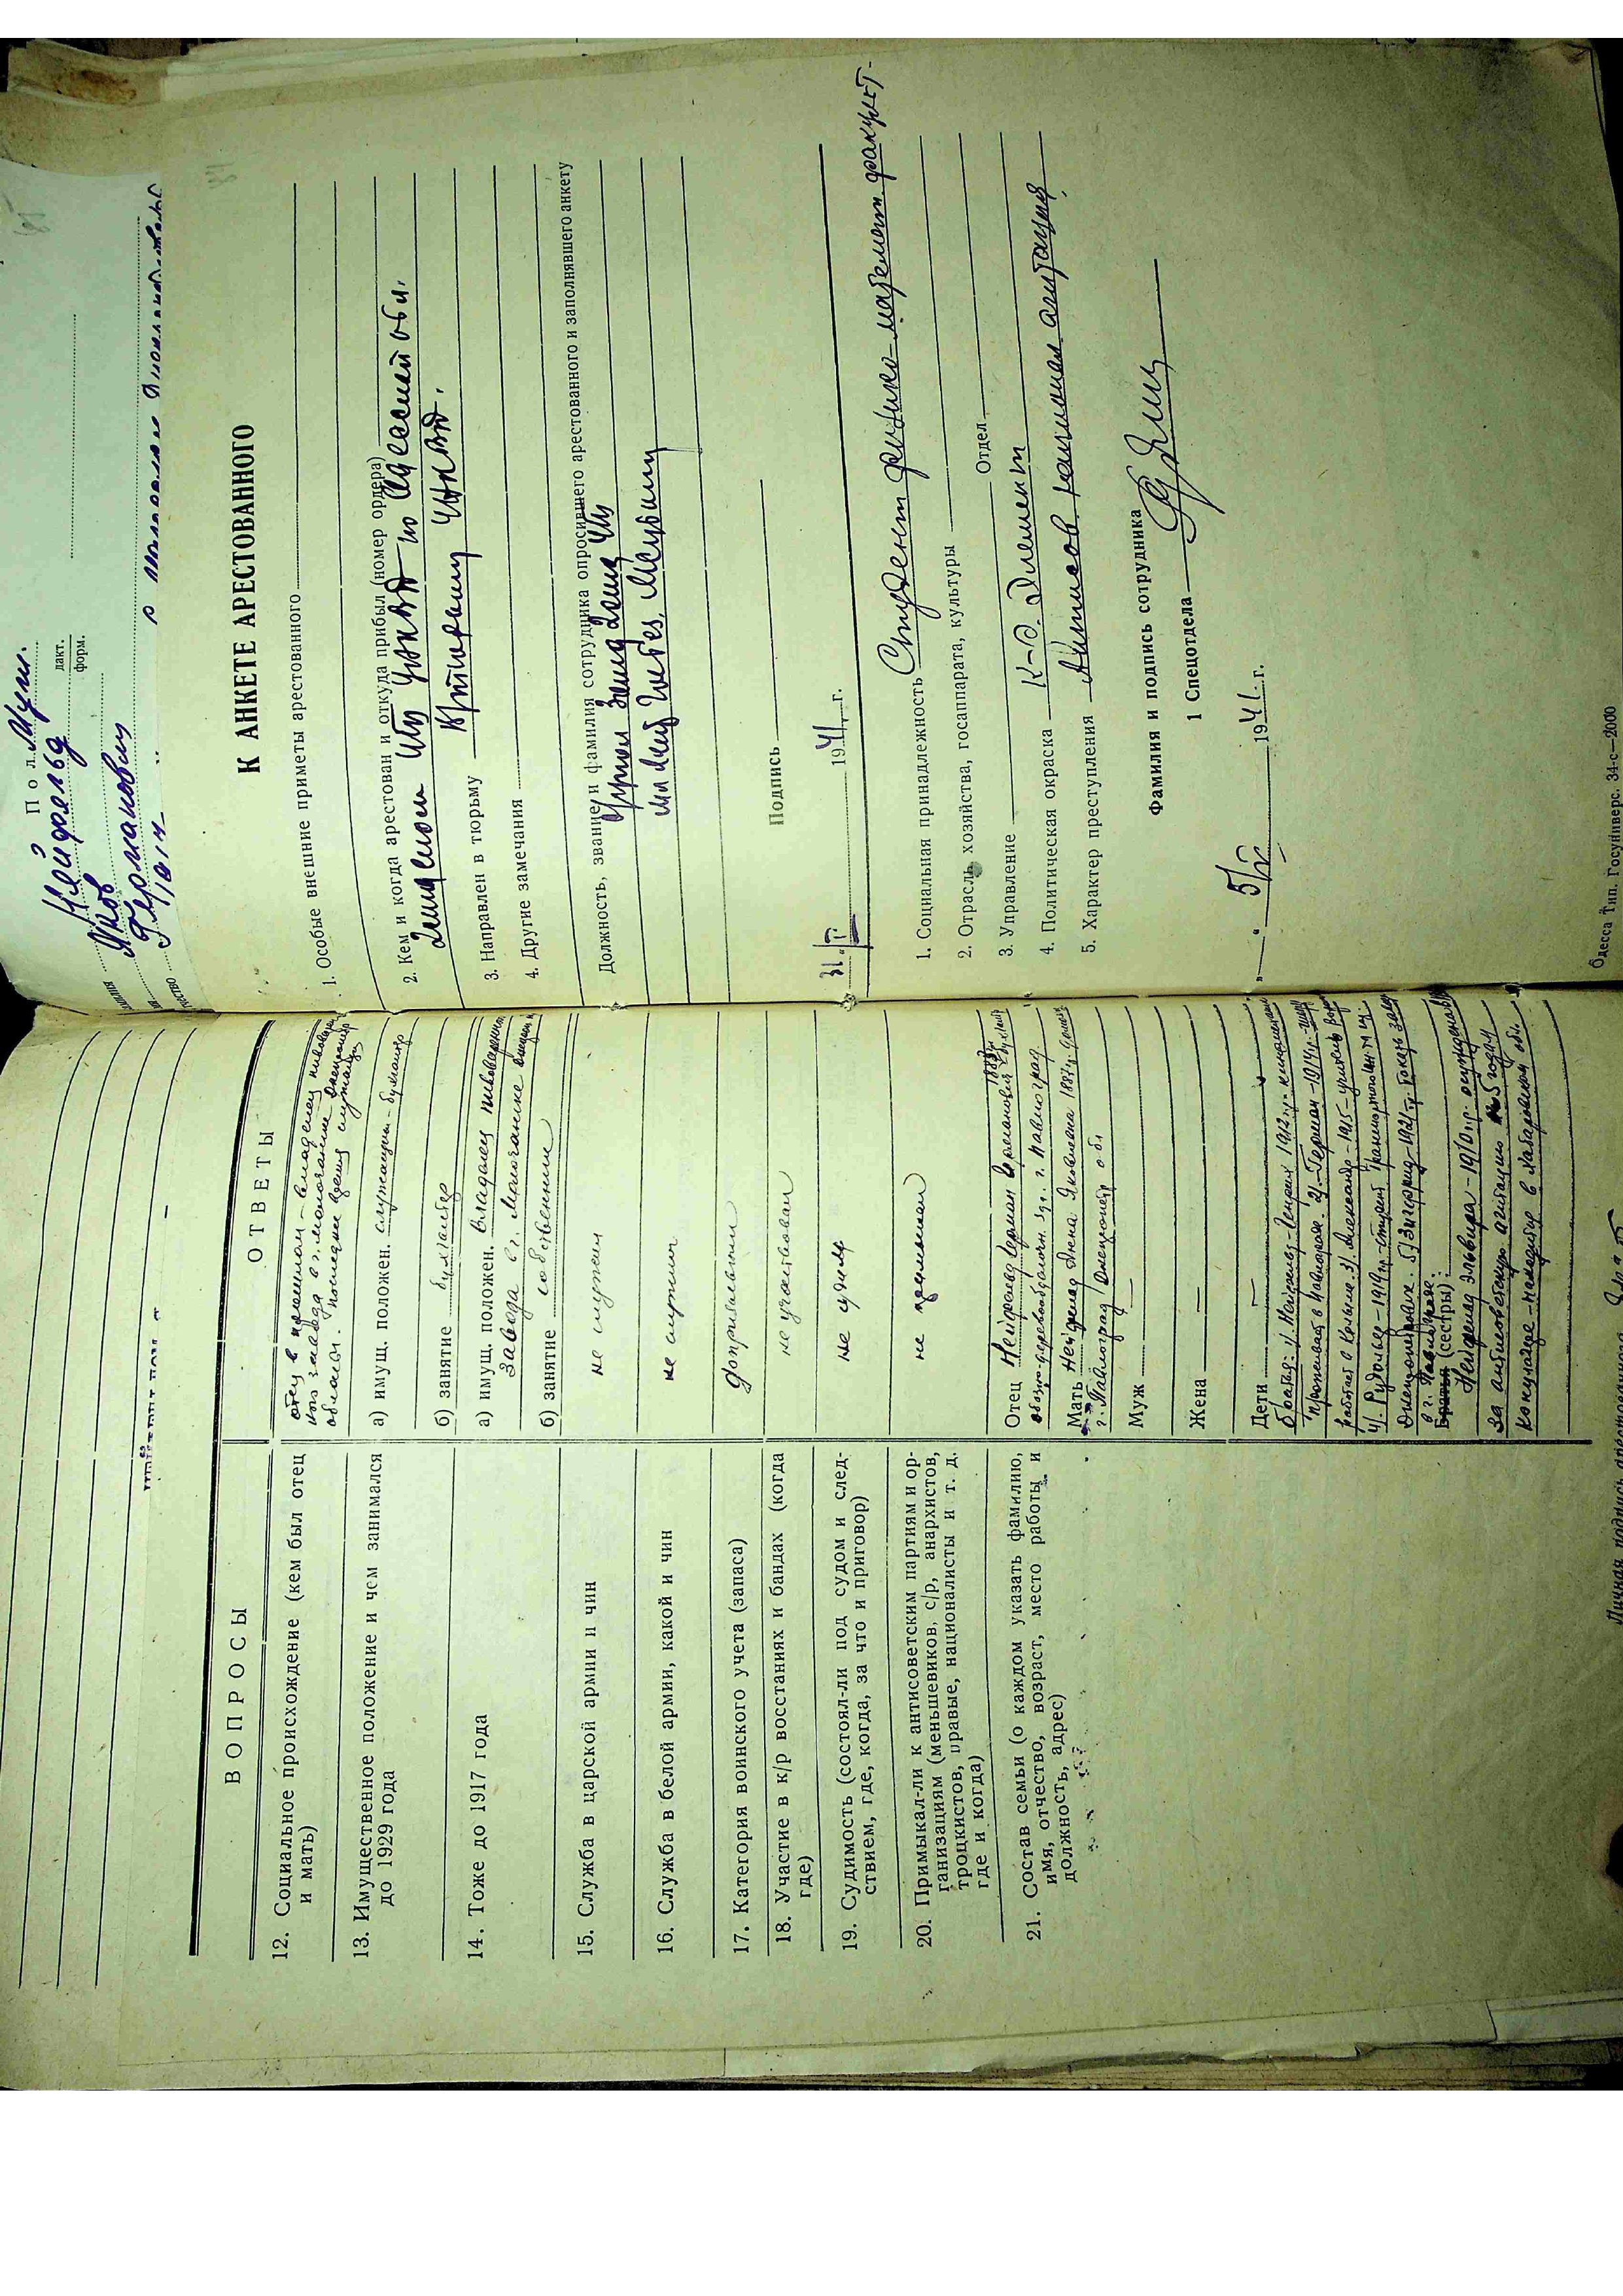 Пол Муж.
Нейфельд
дакт.
форм.
Яков
Германович
1917
ВОПРОСЫ
ОТВЕТЫ
12. Социальное происхождение (кем был отец
и мать)
отец в прошлом - владелец пивовар
завода в г. Молочанске Днепропетр
области. Последнее время служащий
13. Имущественное положение и чем занимался
до 1929 года
а) имущ. положен. служащий - бухгалтер
б) занятие бухгалтер
14. Тоже до 1917 года
а) имущ. положен. Владелец пивоваренного
завода в г. Молочанске
б) занятие собственник
15. Служба в царской армии и чин
не служил
16. Служба в белой армии, какой и чин
не служил
17. Категория воинского учета (запаса)
Допризывник
18. Участие в к/р восстаниях и бандах (когда
где)
не участвовал
19. Судимость (состоял-ли под судом и след-
ствием, где, когда, за что и приговор)
не судим
20. Примыкал-ли к антисоветским партиям и ор-
ганизациям (меньшевиков, с/р, анархистов,
троцкистов, правые, националисты и т. д.
где и когда)
не примыкал
21. Состав семьи (о каждом указать фамилию,
имя, отчество, возраст, место работы и
должность, адрес)
Отец Нейфельд Герман 1883
г. Павлоград
Мать Нейфельд Анна Яковлевна 1887 г.
г. Павлоград Днепропетр обл
Муж —
Жена —
Дети —
Братья: 1. Нейфельд Генрих 1912 г.
проживает в Павлограде. 2). Герман - 1914 г.
работает в Колыме. 3). Александр - 1915 - учитель
4). Рудольф - 1919 г. - студент транспортного ин-та
Днепропетровск. 5) Зигфрид - 1921 г.
в г. Павлограде
Братья (сестры):
Нейфельд Эльвира - 1910 г.р. осуждена
за антисоветскую агитацию на 5 годам
концлагере - находится в Хабаровской обл.
Личная подпись арестованного
К АНКЕТЕ АРЕСТОВАННОГО
1. Особые внешние приметы арестованного
2. Кем и когда арестован и откуда прибыл (номер ордера)
УНКВД по Одесской обл.
3. Направлен в тюрьму
УНКВД.
4. Другие замечания
Должность, звание и фамилия сотрудника опросившего арестованного и заполнявшего анкету
Подпись
31/V 1941 г.
1. Социальная принадлежность Студент физико-математ. факульт-
2. Отрасль хозяйства, госаппарата, культуры
3. Управление
Отдел
4. Политическая окраска К-Р. Элемент
5. Характер преступления Антисов. агитация
Фамилия и подпись сотрудника
1 Спецотдела
5/V 1941 г.
Одесса Тип. Госуниверс. 34-с—2000